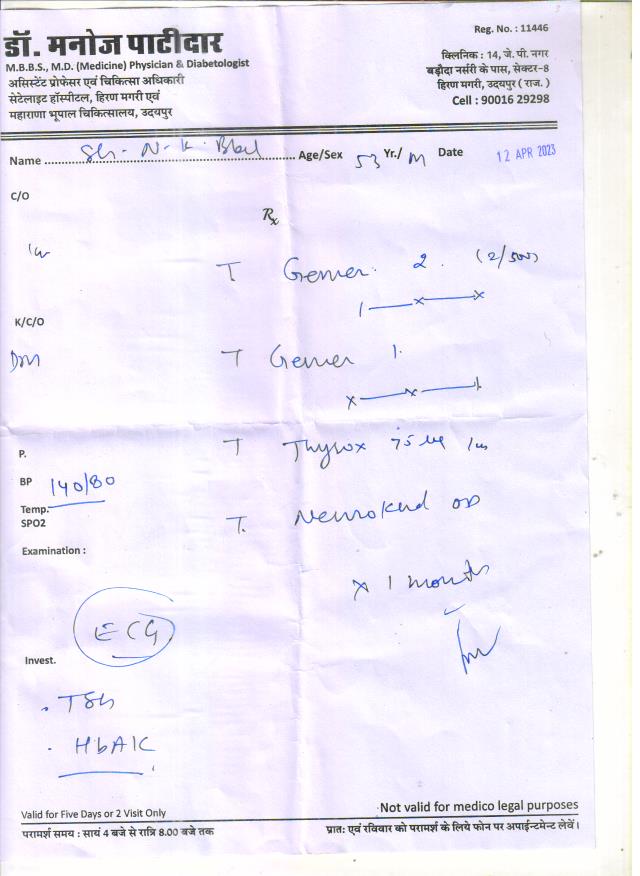 डॉ. मनोज पाटीदार
M.B.B.S., M.D. (Medicine) Physician & Diabetologist
असिस्टेंट प्रोफेसर एवं चिकित्सा अधिकारी
सेटेलाइट हॉस्पीटल, हिरण मगरी एवं
महाराणा भूपाल चिकित्सालय, उदयपुर
Reg. No. : 11446
क्लिनिक : 14, जे. पी. नगर
बड़ौदा नर्सरी के पास, सेक्टर-8
हिरण मगरी, उदयपुर ( राज. )
Cell : 90016 29298
Name Sh. N. K. Age/Sex 53 Yr./ M Date 12 APR 2023
C/O
Rx
T Gemer 2 (2/500)
1 — x — x
K/C/O
DM T Gemer 1
x — x — 1
P. T Thyrox 75
BP 140/80
Temp.
SPO2
T. Neurokind OD
Examination :
x 1 month
ECG
Invest.
. TSH
. HbA1C
Valid for Five Days or 2 Visit Only
Not valid for medico legal purposes
परामर्श समय : सायं 4 बजे से रात्रि 8.00 बजे तक
प्रात: एवं रविवार को परामर्श के लिये फोन पर अपाईन्टमेन्ट लेवें।